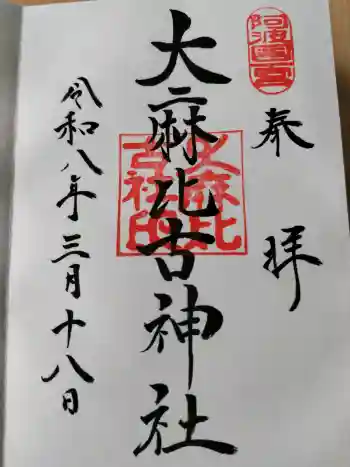 奉拝
阿波國一宮
大麻比古神社
大麻比古社印
令和八年三月十八日